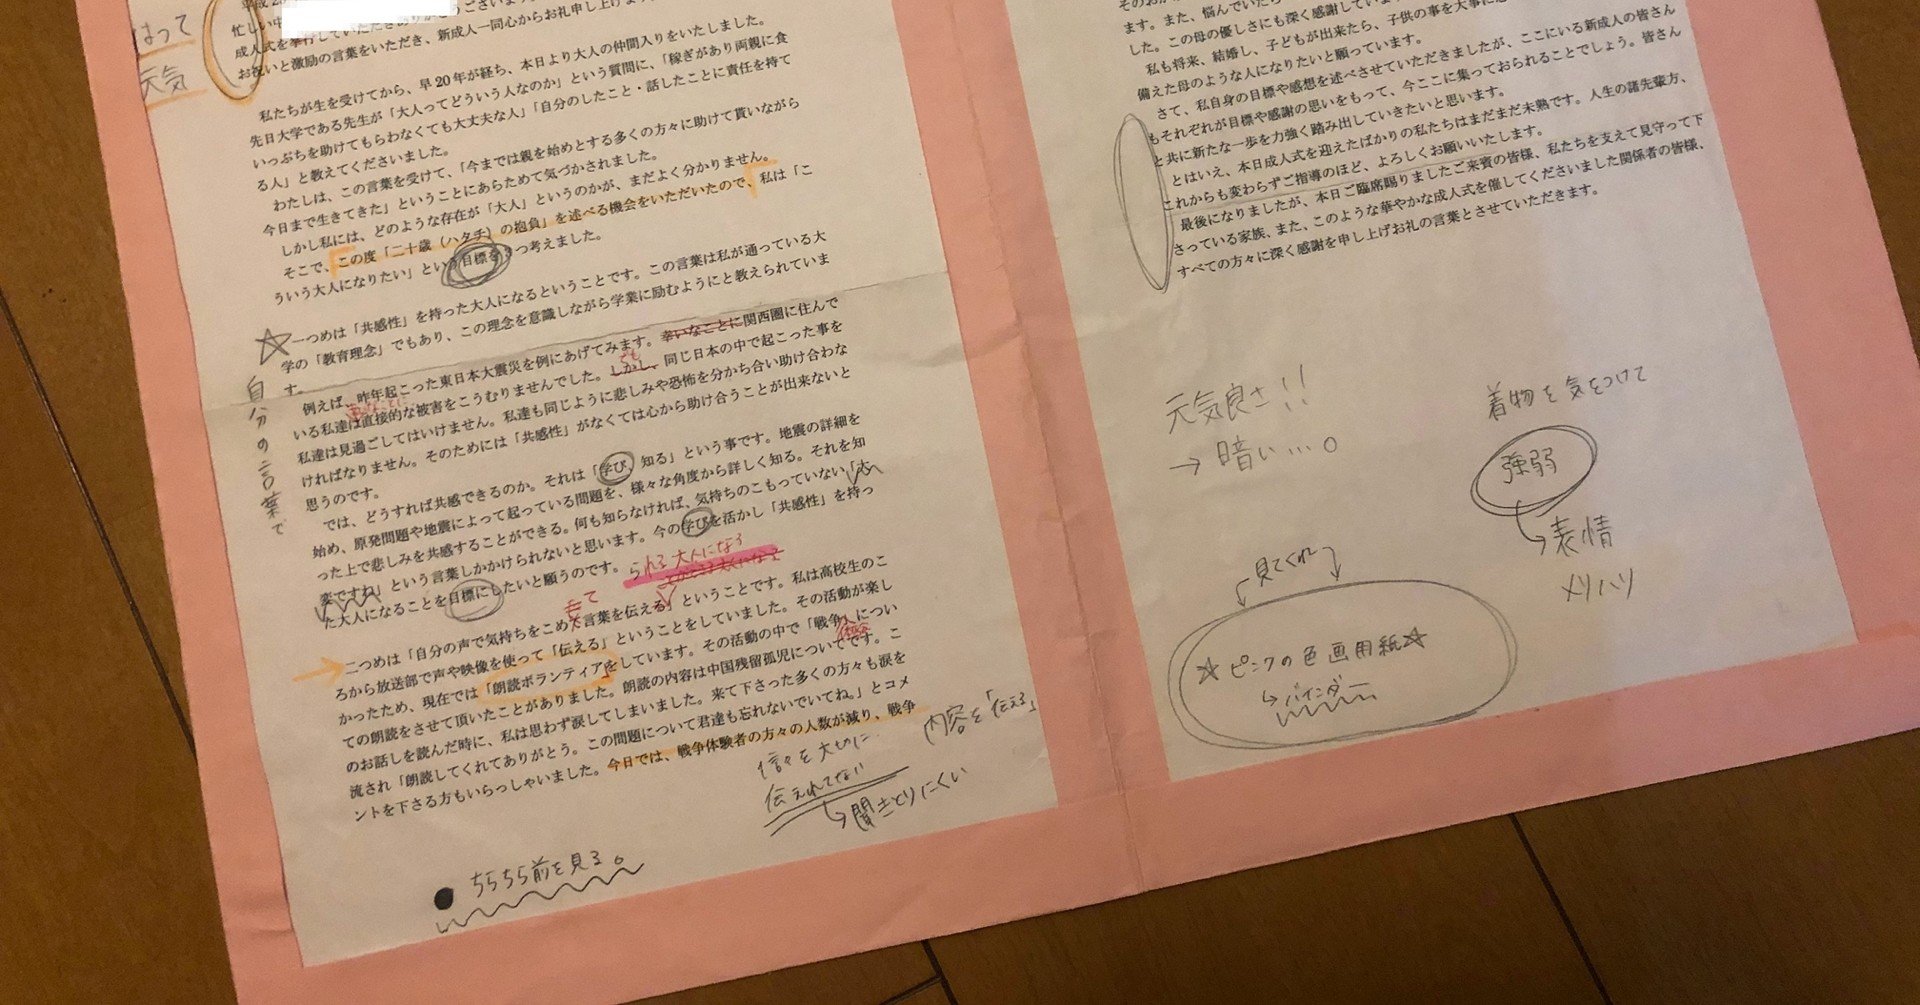 はって
元気
平成2
忙しい中
成人式を挙行していただきありがとうございます。
お祝いと激励の言葉をいただき、新成人一同心からお礼申し上げます。
私たちが生を受けてから、早20年が経ち、本日より大人の仲間入りをいたしました。
先日大学である先生が「大人ってどういう人なのか」という質問に、「稼ぎがあり両親に食
いっぷちを助けてもらわなくても大丈夫な人」「自分のしたこと・話したことに責任を持て
る人」と教えてくださいました。
わたしは、この言葉を受けて、「今までは親を始めとする多くの方々に助けて貰いながら
今日まで生きてきた」ということにあらためて気づかされました。
しかし私には、どのような存在が「大人」というのかが、まだよく分かりません。
そこで、この度「二十歳（ハタチ）の抱負」を述べる機会をいただいたので、私は「こ
ういう大人になりたい」という目標を
つ考えました。
一つめは「共感性」を持った大人になるということです。この言葉は私が通っている大
学の「教育理念」でもあり、この理念を意識しながら学業に励むようにと教えられていま
す。
自分の言葉で
例えば、昨年起こった東日本大震災を例にあげてみます。幸いなことに関西圏に住んで
いる私達は直接的な被害をこうむりませんでした。しかし、同じ日本の中で起こった事を
私達は見過ごしてはいけません。私達も同じように悲しみや恐怖を分かち合い助け合わな
ければなりません。そのためには「共感性」がなくては心から助け合うことが出来ないと
思うのです。
では、どうすれば共感できるのか。それは「学び、知る」という事です。地震の詳細を
始め、原発問題や地震によって起っている問題を、様々な角度から詳しく知る。それを知
った上で悲しみを共感することができる。何も知らなければ、気持ちのこもっていない「大
変ですね」という言葉しかかけられないと思います。今の学びを活かし「共感性」を持っ
た大人になることを目標にしたいと願うのです。
られる大人になろう
二つめは「自分の声で気持ちをこめて言葉を伝える」ということです。私は高校生のこ
ろから放送部で声や映像を使って「伝える」ということをしていました。その活動が楽し
かったため、現在では「朗読ボランティア」をしています。その活動の中で「戦争」につい
ての朗読をさせて頂いたことがありました。朗読の内容は中国残留孤児についてです。こ
のお話しを読んだ時に、私は思わず涙してしまいました。来て下さった多くの方々も涙を
流され「朗読してくれてありがとう。この問題について君達も忘れないでいてね。」とコメ
ントを下さる方もいらっしゃいました。今日では、戦争体験者の方々の人数が減り、戦争
内容を「伝える」
を大切に
伝えれてない
→聞きとりにくい
●ちらちら前を見る。
ます。また、悩んでいたら
した。この母の優しさにも深く感謝しています
私も将来、結婚し、子どもが出来たら、子供の事を大事に
備えた母のような人になりたいと願っています。
さて、私自身の目標や感想を述べさせていただきましたが、ここにいる新成人の皆さん
もそれぞれが目標や感謝の思いをもって、今ここに集っておられることでしょう。皆さん
と共に新たな一歩を力強く踏み出していきたいと思います。
とはいえ、本日成人式を迎えたばかりの私たちはまだまだ未熟です。人生の諸先輩方、
これからも変わらずご指導のほど、よろしくお願いいたします。
最後になりましたが、本日ご臨席賜りましたご来賓の皆様、私たちを支えて見守って下
さっている家族、また、このような華やかな成人式を催してくださいました関係者の皆様、
すべての方々に深く感謝を申し上げお礼の言葉とさせていただきます。
元気良さ!!
→暗い…。
着物を気をつけて
強弱
→表情
メリハリ
見てくれ
☆ピンクの色画用紙☆
→バインダー